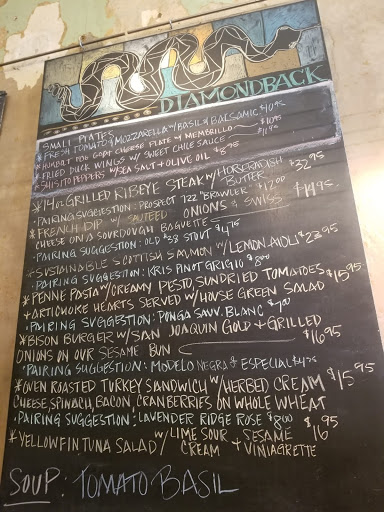 DIAMONDBACK
SMALL PLATES
*FRESH TOMATO & MOZZARELLA W/ BASIL & BALSAMIC $10.95
*HUMBOLT FOG GOAT CHEESE PLATE W/ MEMBRILLO $10.95
*FRIED DUCK WINGS W/ SWEET CHILE SAUCE $11.95
*SHISITO PEPPERS W/ SEA SALT + OLIVE OIL $8.95
*14oz. GRILLED RIBEYE STEAK W/ HORSERADISH BUTTER $32.95
•PAIRING SUGGESTION: PROSPECT 772 "BRAWLER" $12.00
*FRENCH DIP W/ SAUTEED ONIONS & SWISS $14.95
CHEESE ON A SOURDOUGH BAGUETTE
•PAIRING SUGGESTION: OLD #38 STOUT $4.75
*SUSTAINABLE SCOTTISH SALMON W/ LEMON AIOLI $23.95
•PAIRING SUGGESTION: KRIS PINOT GRIGIO $8.00
*PENNE PASTA W/ CREAMY PESTO, SUNDRIED TOMATOES $15.95
+ ARTICHOKE HEARTS SERVED W/ HOUSE GREEN SALAD
•PAIRING SUGGESTION: PONGA SAUV. BLANC $7.00
*BISON BURGER W/ SAN JOAQUIN GOLD + GRILLED
ONIONS ON OUR SESAME BUN $16.95
•PAIRING SUGGESTION: MODELO NEGRA & ESPECIAL $4.75
*OVEN ROASTED TURKEY SANDWICH W/ HERBED CREAM $15.95
CHEESE, SPINACH, BACON, CRANBERRIES ON WHOLE WHEAT
•PAIRING SUGGESTION: LAVENDER RIDGE ROSE $8.00
*YELLOWFIN TUNA SALAD W/ LIME SOUR CREAM + SESAME VINIAGRETTE $16.95
SOUP: TOMATO BASIL